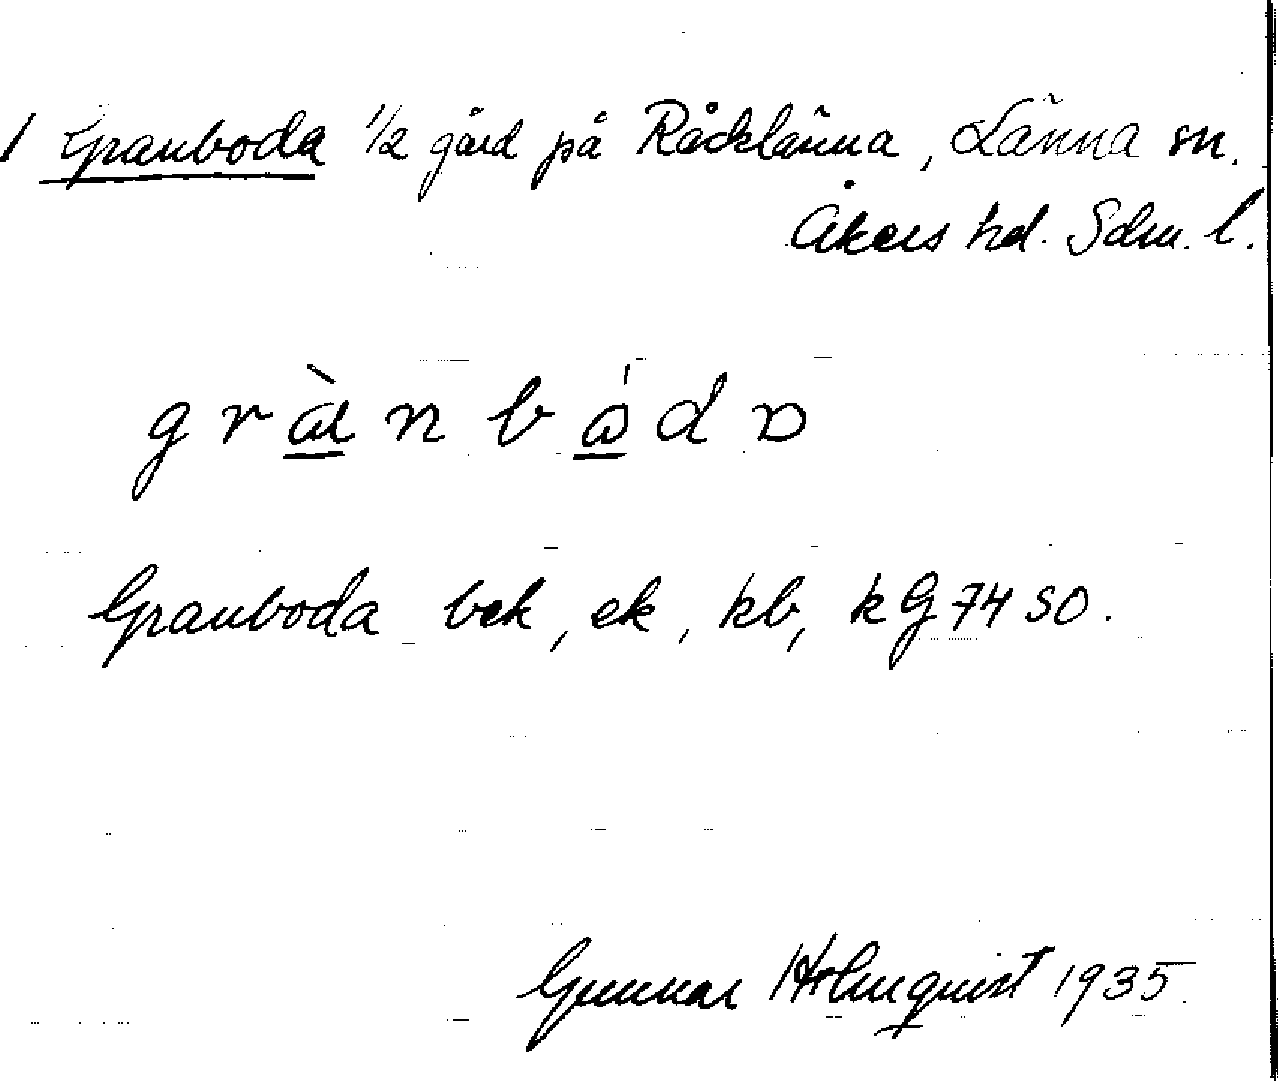 1 Granboda 1/2 gård på Råcklänna, Länna sn.
Åkers hd. Sdm. l.
grànbådα
Granboda bek, ek, kb, kG 74 SO.
Gunnar Holmquist 1935.